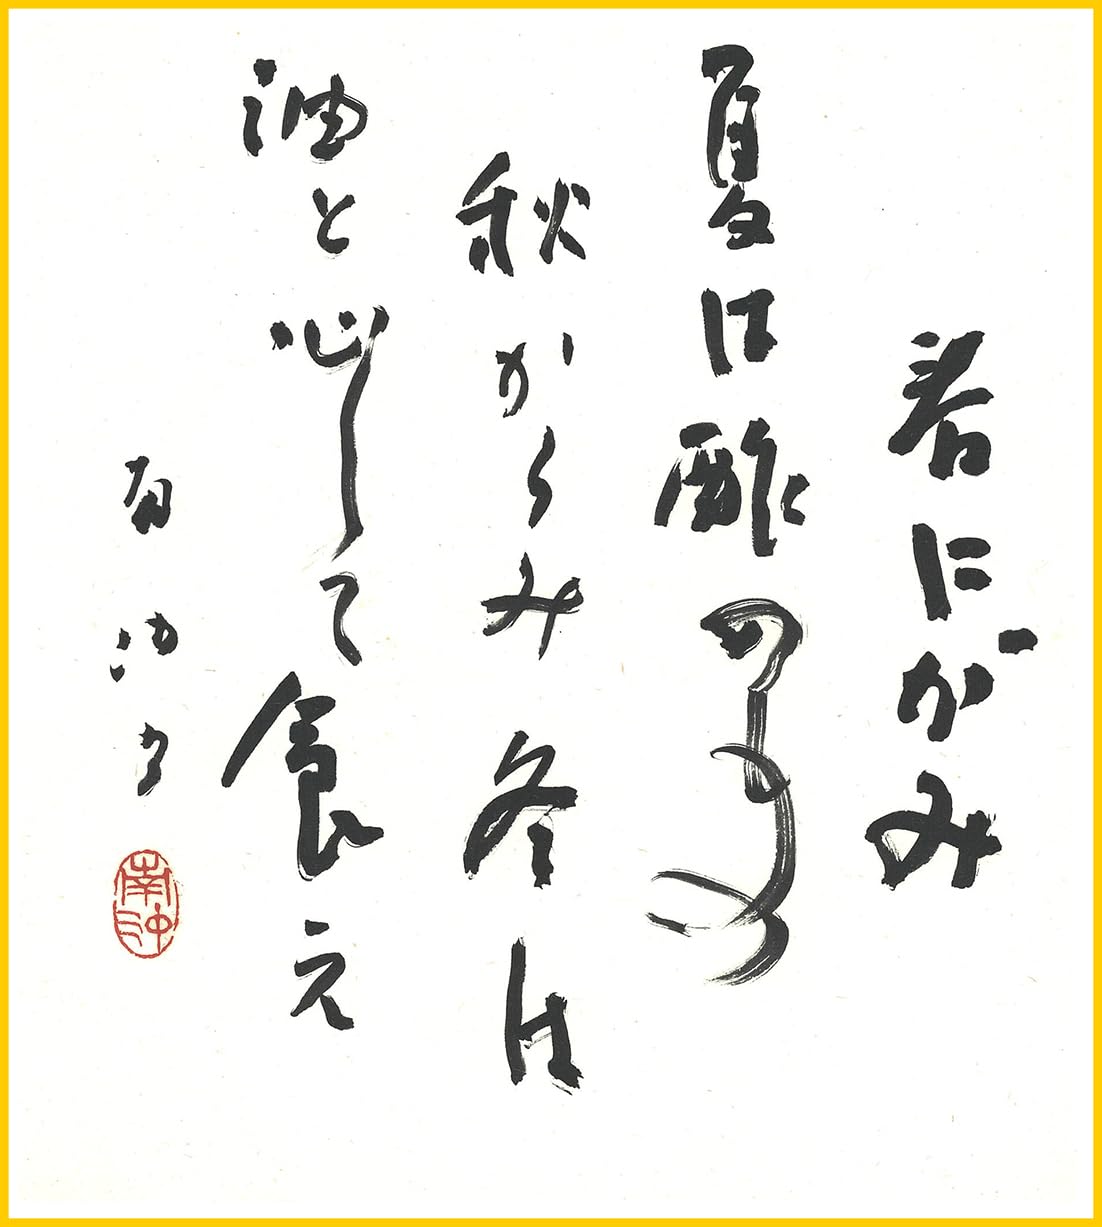 春にがみ
夏は酢のもの
秋からみ冬は
油と心して食え